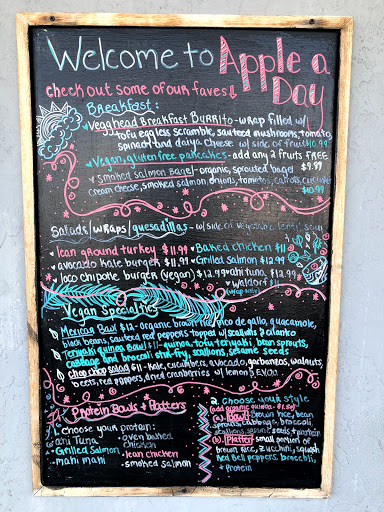 Welcome to Apple a Day
check out some of our faves
Breakfast:
Vegghead Breakfast Burrito - wrap filled w/
tofu eggless scramble, sauteed mushrooms, tomato,
spinach and daiya cheese w/ side of fruit 10.99
Vegan, gluten free pancakes - add any 2 fruits FREE
$9.99
smoked salmon Bagel - organic, sprouted bagel
cream cheese, smoked salmon, onions, tomatoes, carrots, cucumber
$10.99
Salads/wraps/quesadillas - w/ side of vegetable lentil soup
lean ground turkey $11.99
Baked chicken $11
avocado kale burger $11.99
Grilled salmon $12.99
loco chipotle burger (vegan) $12.99
ahi tuna $12.99
Waldorf $11
(wrap only)
Vegan Specialties
Mexican Bowl $12 - organic brown rice, pico de gallo, guacamole,
black beans, sauteed red peppers topped w/ scallions & cilantro
Teriyaki Quinoa Bowl $11 - quinoa, tofu teriyaki, bean sprouts,
cabbage and broccoli stir-fry, scallions, sesame seeds
chop chop salad $11 - kale, cucumbers, avocado, garbanzos, walnuts
beets, red peppers, dried cranberries w/ lemon & EVOO
Protein Bowls + Platters
1. choose your protein:
Ahi Tuna
oven baked chicken
Grilled Salmon
lean chicken
mahi mahi
smoked salmon
2. Choose your style
(add organic quinoa
(a.) Bowl: Brown rice, bean
sprouts, cabbage, broccoli,
scallions, sesame seeds + protein
(b.) Platter: small portion of
brown rice, zucchini, squash
Red Bell peppers, broccoli,
+ protein